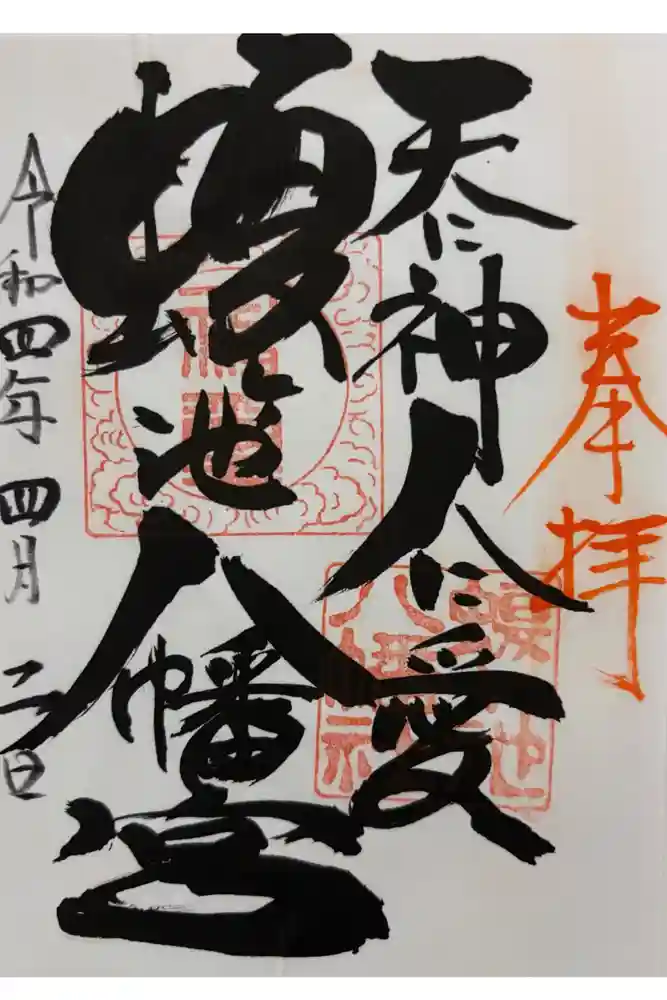 奉拝
天に神人に愛
蝮ヶ池八幡宮
令和四年 四月 二日